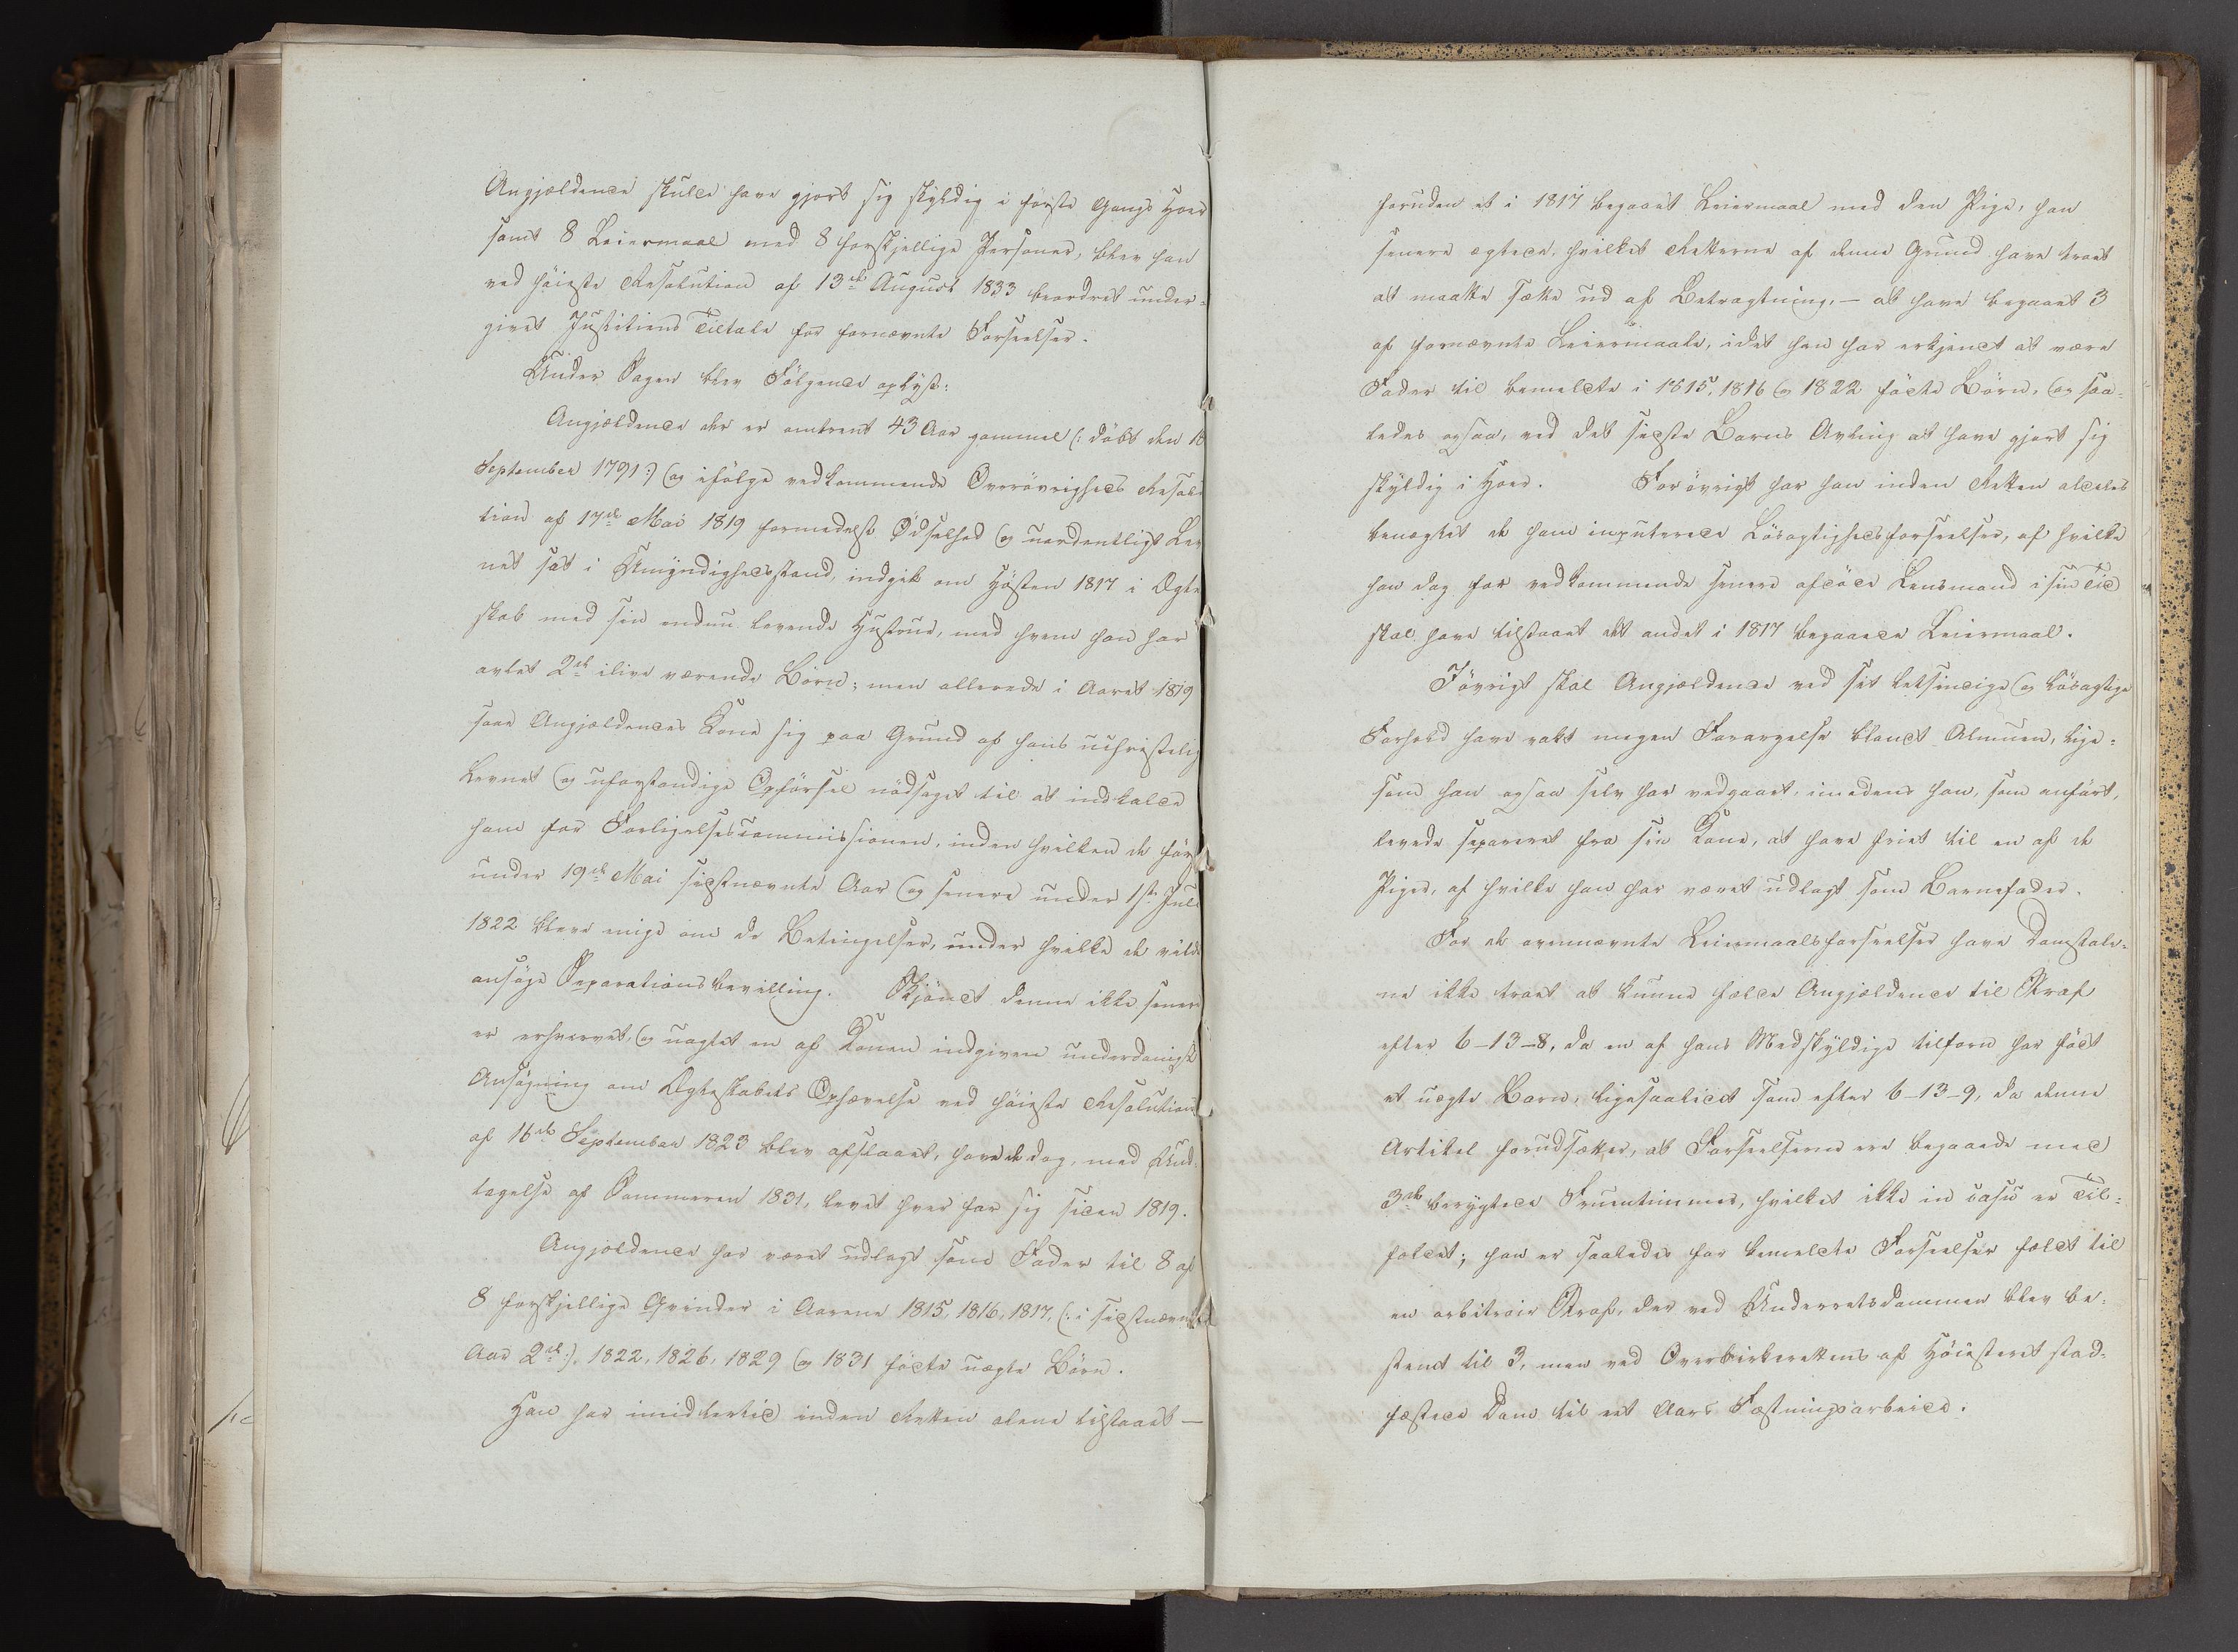 Angjældende skulde have gjort sig skyldig i første Gangs Hoer
samt 8 Leiermaal med 8 forskjellige Personer, blev han
ved høieste Resolution af 13de August 1833 beordret under-
givet Justitiens Tiltale for fornævnte Forseelser.
Under Sagen blev Følgende oplyst:
Angjældende der er omtrent 43 Aar gammel (: døbt den 18
September 1791:) og ifølge vedkommende Overøvrigheds Resolu
tion af 17de Mai 1819 formedelst Ødselhed og uordentligt Lev
net sat i Umyndighedsstand, indgik om Høsten 1817 i Ægte
skab med sin endnu levende Hustrue, med hvem han har
avlet 2de ilive værende Børn; men allerede i Aaret 1819
saae Angjældendes Kone sig paa Grund af hans uchristelig
Levnet og uforstandige Opførsel nødsaget til at indkalde
ham for Forligelsescommissionen, inden hvilken de før
under 19de Mai sidstnævnte Aar og senere under 1ste Juli
1822 bleve enige om de Betingelser, under hvilke de vilde
ansøge Separationsbevilling. Skjøndt denne ikke sener
er erhvervet, og uagtet en af Konen indgiven underdanigst
Ansøgning om Ægteskabets Ophævelse ved høieste Resolution
af 16de September 1823 blev afslaaet, have de dog, med Und-
tagelse af Sommeren 1831, levet hver for sig siden 1819.
Angjældende har været udlagt som Fader til 8 af
8 forskjellige Qvinder i Aarene 1815, 1816, 1817, (: i sidstnævnte
Aar 2de:), 1822, 1826, 1829 og 1831 fødte uægte Børn.
Han har imidlertid inden Retten alene tilstaaet —
foruden et i 1817 begaaet Leiermaal med den Pige, han
senere ægtede, hvilket Retterne af denne Grund have troet
at maatte sætte ud af Betragtning, — at have begaaet 3
af fornævnte Leiermaale, idet han har erkjendt at være
Fader til bemeldte i 1815, 1816 og 1822 fødte Børn, og saa-
ledes ogsaa, ved det sidste Barns Avling at have gjort sig
skyldig i Hoer. Forøvrigt har han inden Retten aldeles
benægtet de ham imputerede Løsagtighedsforseelser, af hvilke
han dog for vedkommende senere afdøde Lensmand i sin Tid
skal have tilstaaet det andet i 1817 begaaede Leiermaal.
Iøvrigt skal Angjældende ved sit letsindige og løsagtige
Forhold have vakt megen Forargelse blandt Almuen, lige-
som han ogsaa selv har vedgaaet, imedens han, som anført,
levede separeret fra sin Kone, at have friet til en af de
Piger, af hvilke han har været udlagt som Barnefader.
For de ovennævnte Leiermaalsforseelser have Domstole-
ne ikke troet at kunne fælde Angjældende til Straf
efter 6-13-8, da en af hans Medskyldige tilforn har født
et uægte Barn, ligesaalidet som efter 6-13-9, da denne
Artikel forudsætter, at Forseelserne ere begaaede med
3de berygtede Fruentimmer, hvilket ikke in casu er Til-
fældet; han er saaledes for bemeldte Forseelser fældet til
en arbitrair Straf, der ved Underretsdommen blev be-
stemt til 3, men ved Overbirkerettens af Høiesteret stad-
fæstede Dom til eet Aars Fæstningsarbeide.